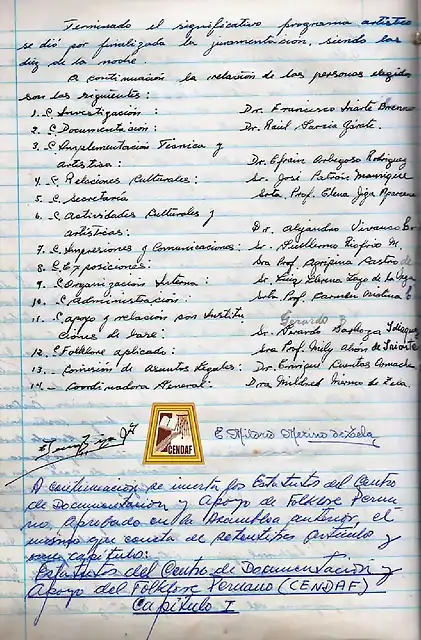 Terminado el significativo programa artístico
se dió por finalizada la juramentación, siendo las
diez de la noche.
A continuación la relación de las personas elegidas
son las siguientes:
1. C. Investigación: Dr. Francisco Iriarte Brenner
2. C. Documentación: Dr. Raúl García Zárate.
3. C. Implementación Técnica y
artística: Dr. Efraín Rodríguez
4. C. Relaciones Culturales: Sr. José Patrón Manrique
5. C. Secretaría Srta. Prof. Elena
6. C. Actividades Culturales y
artísticas: Dr. Alejandro Vivanco
7. C. Impresiones y Comunicaciones: Sr. Guillermo
8. C. Exposiciones: Sra Prof. Agripina Castro de
9. C. Organización Interna: Sr. Luz Elena de la Vega
10. C. Administración: Srta Prof. Carmen
11. C. apoyo y relación con Institu Gerardo B
ciones de base: Sr. Gerardo
12. C. Folklore aplicado: Sra Prof. Mily Ahón de Iriarte
13. - Comisión de Asuntos Legales: Dr. Enrique Cuentas
14. - Coordinadora General: Dra Mildred Merino de Zela.
CENDAF
E. Mildred Merino de Zela
A continuación se inserta los Estatutos del Centro
de Documentación y Apoyo de Folklore Perua
no, aprobado en la Asamblea anterior, el
mismo que consta de artículos y
capítulos:
Estatutos del Centro de Documentación y
Apoyo del Folklore Peruano (CENDAF)
Capítulo I